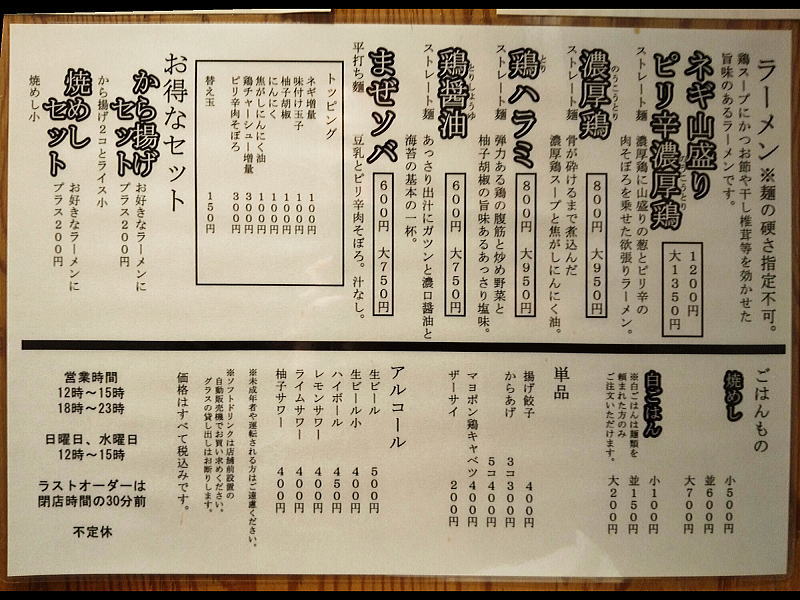 ラーメン※麺の硬さ指定不可。
鶏スープにかつお節や干し椎茸等を効かせた
旨味のあるラーメンです。
ネギ山盛り
ピリ辛濃厚鶏
のうこうとり
1200円
大1350円
ストレート麺
濃厚鶏に山盛りの葱とピリ辛の
肉そぼろを乗せた欲張りラーメン。
濃厚鶏
のうこうとり
800円 大950円
ストレート麺
骨が砕けるまで煮込んだ
濃厚鶏スープと焦がしにんにく油。
鶏ハラミ
とり
800円 大950円
ストレート麺
弾力ある鶏の腹筋と炒め野菜と
柚子胡椒の旨味あるあっさり塩味。
鶏醤油
とりしょうゆ
600円 大750円
ストレート麺
あっさり出汁にガツンと濃口醤油と
海苔の基本の一杯。
まぜソバ
600円 大750円
平打ち麺
豆乳とピリ辛肉そぼろ。汁なし。
トッピング
ネギ増量 100円
味付け玉子 100円
柚子胡椒 100円
にんにく 100円
焦がしにんにく油 100円
鶏チャーシュー増量 300円
ピリ辛肉そぼろ 300円
替え玉 150円
お得なセット
から揚げ
セット
お好きなラーメンに
プラス200円
から揚げ2コとライス小
焼めし
セット
お好きなラーメンに
プラス200円
焼めし小
ごはんもの
焼めし
小500円
並600円
大700円
白ごはん
小100円
並150円
大200円
※白ごはんは麺類を
頼まれた方のみ
ご注文いただけます。
単品
揚げ餃子 400円
からあげ 3コ300円
5コ400円
マヨポン鶏キャベツ 400円
ザーサイ 200円
アルコール
生ビール 500円
生ビール小 400円
ハイボール 450円
レモンサワー 400円
ライムサワー 400円
柚子サワー 400円
※未成年者や運転される方はご遠慮ください。
※ソフトドリンクは店舗前設置の
自動販売機でお買い求めください。
グラスの貸し出しはお断りします。
価格はすべて税込みです。
営業時間
12時～15時
18時～23時
日曜日、水曜日
12時～15時
ラストオーダーは
閉店時間の30分前
不定休